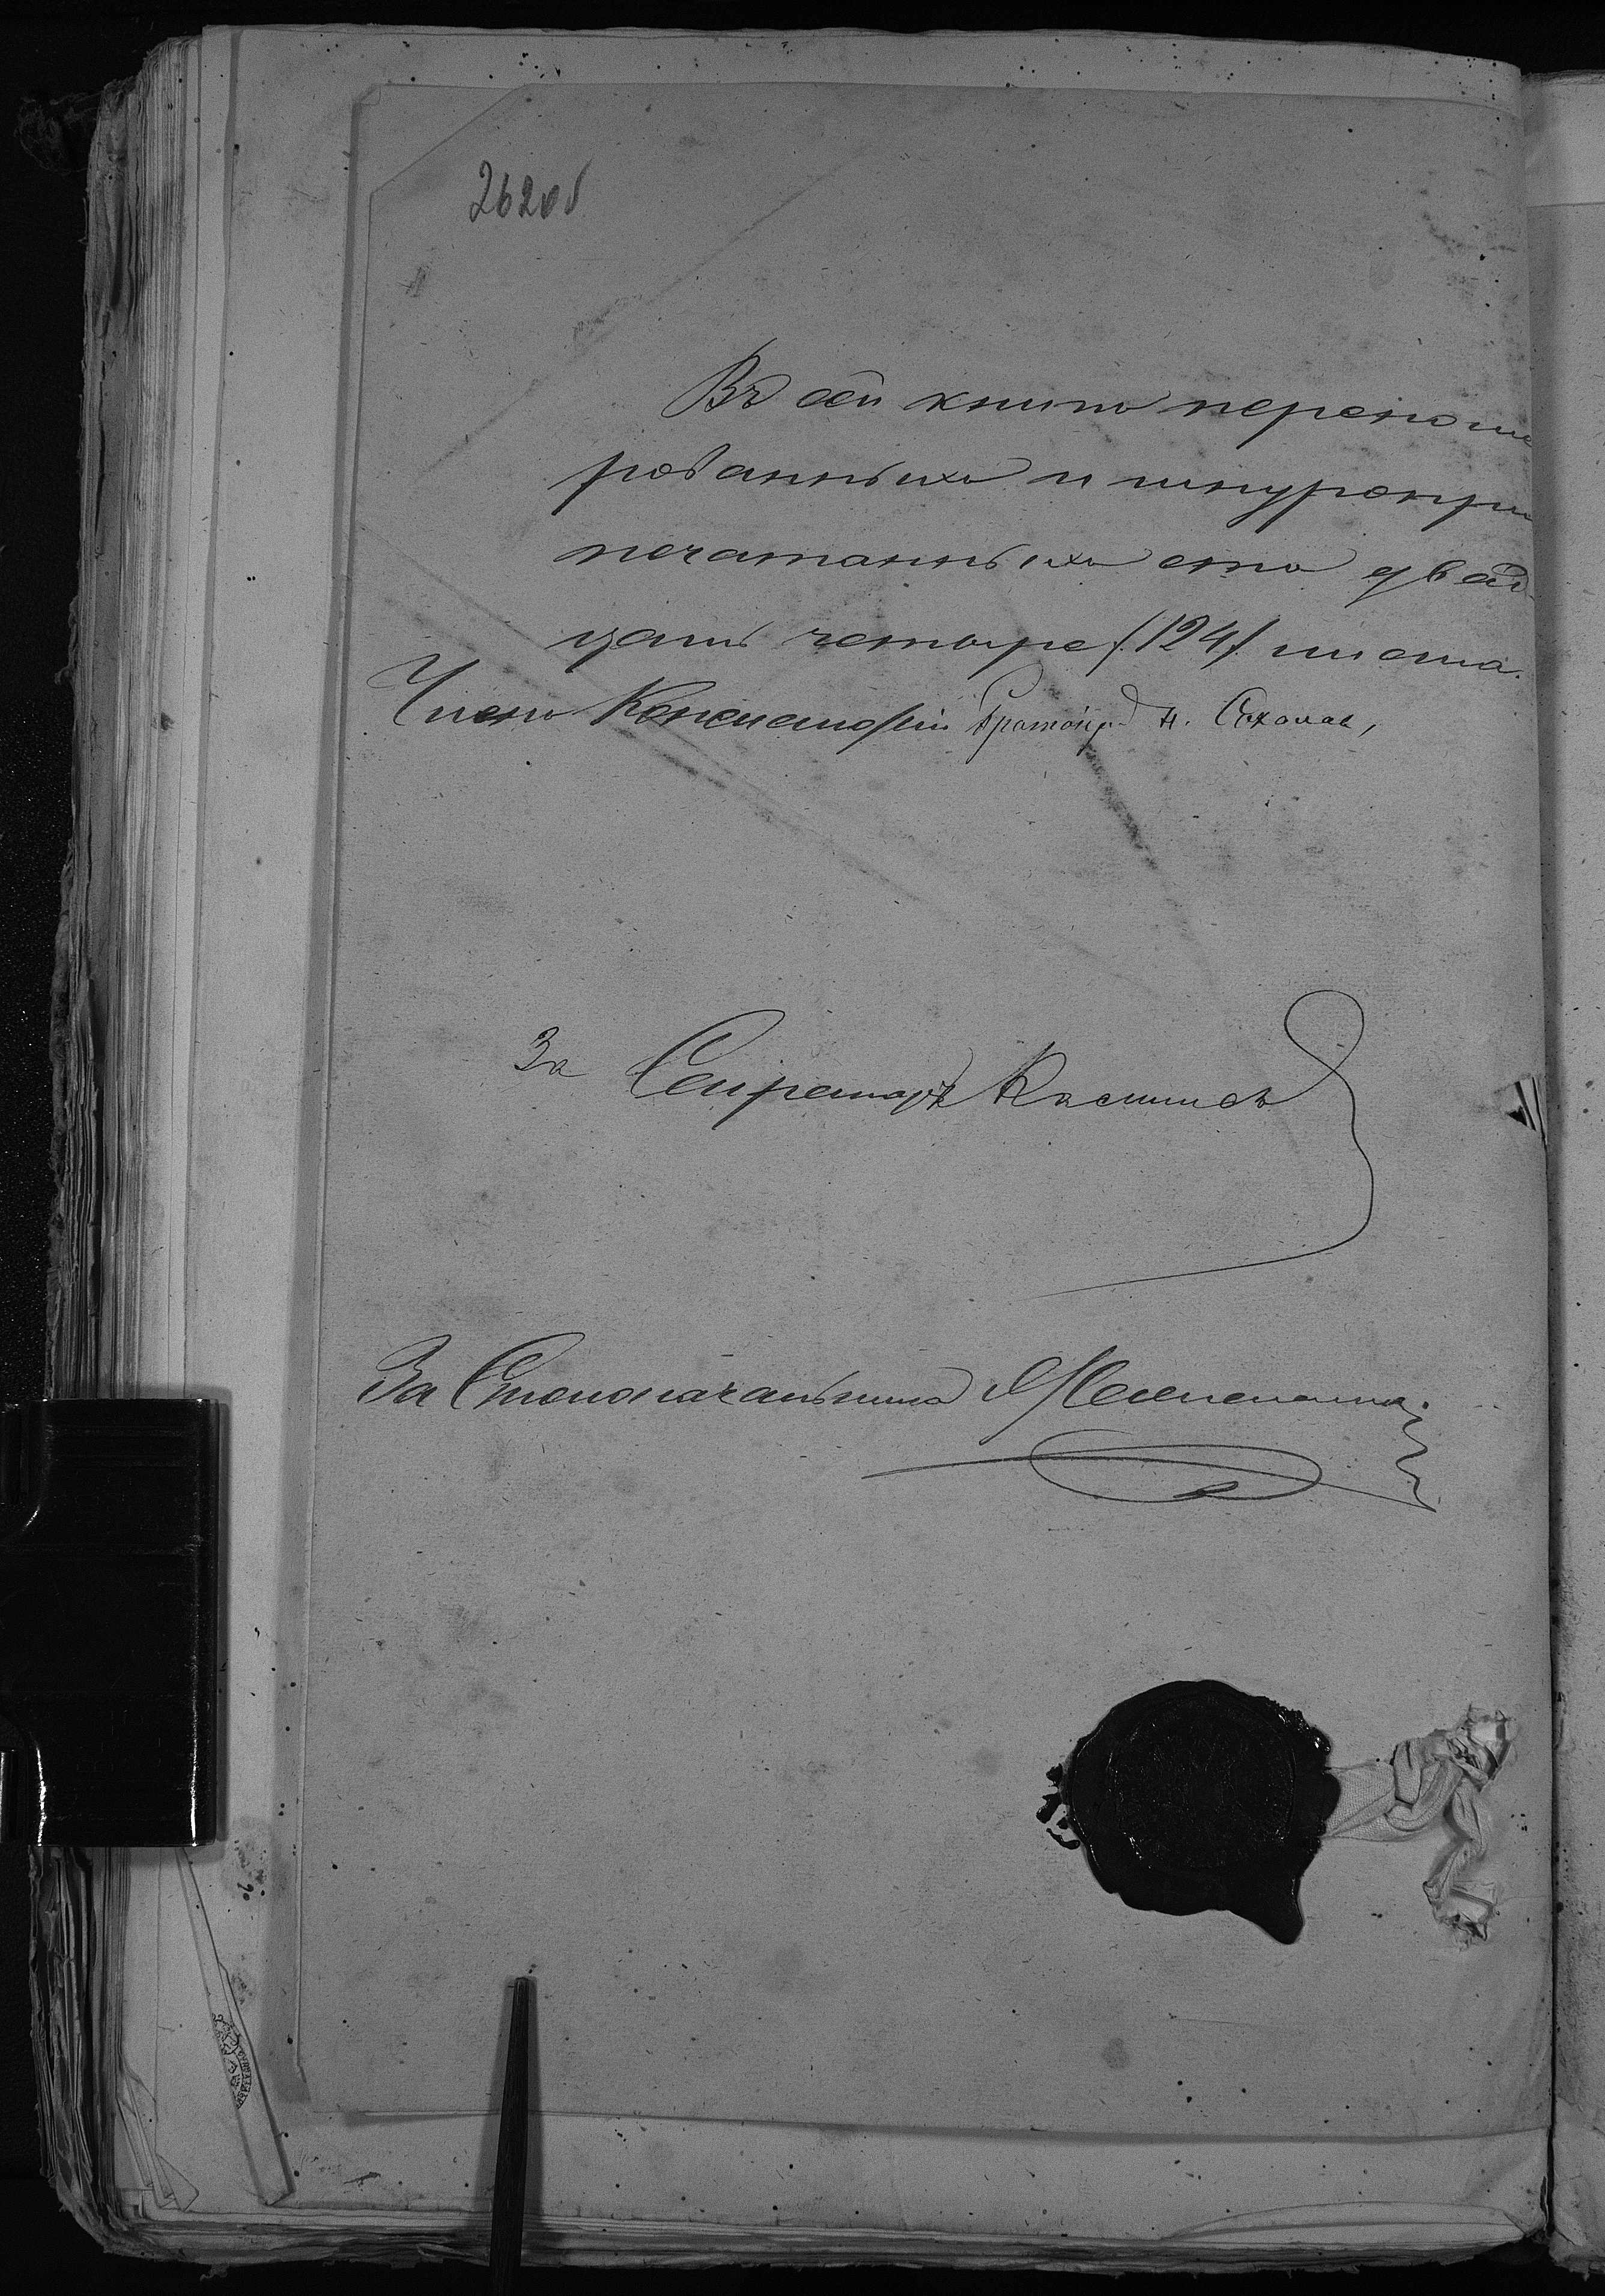 262об
Въ сей книгѣ перенуме
рованныхъ и шнуропри
печатанныхъ сто двад
цать четыре /124/ листа.
Членъ Консисторіи Протоіер. Н. Соколов,
За Секретаря
За Столоначальника